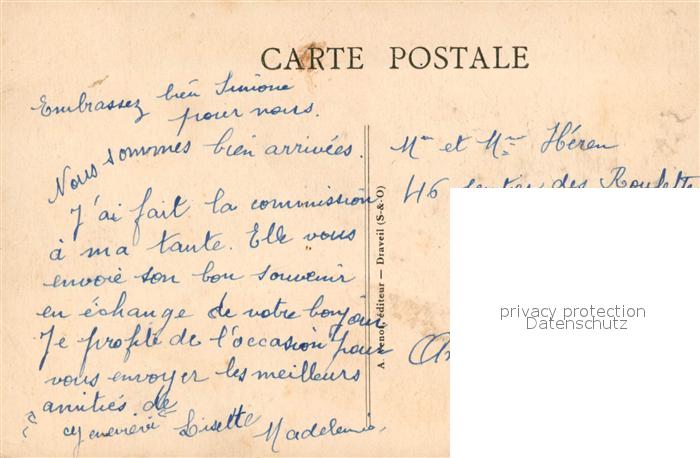 CARTE POSTALE
Embrassez bien Simone
pour nous.
Nous sommes bien arrivées.
J'ai fait la commission
à ma tante. Elle vous
envoie son bon souvenir
en échange de votre bonjour
Je profite de l'occasion pour
vous envoyer les meilleurs
amitiés de
Geneviève Lisette Madeleine.
A. Benoit, éditeur — Draveil (S-&-O)
Mr et Mme Héren
46 sentier des Roulette
privacy protection
Datenschutz